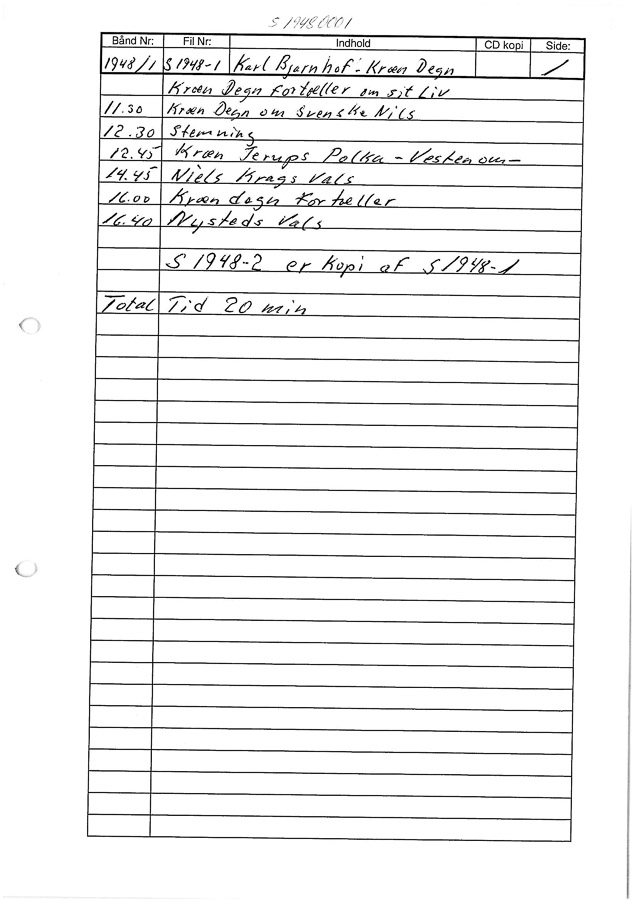 S 19480001
Bånd Nr: Fil Nr: Indhold CD kopi Side:
1948/1 S 1948-1 Karl Bjarnhof - Kræn Degn 1
Kræn Degn fortæller om sit Liv
11.30 Kræn Degn om Svenske Nils
12.30 Stemning
12.45 Kræn Jerups Polka - Vesten om -
14.45 Niels Krags Vals
16.00 Kræn degn fortæller
16.40 Nysteds Vals
S 1948-2 er Kopi af S 1948-1
Total Tid 20 min